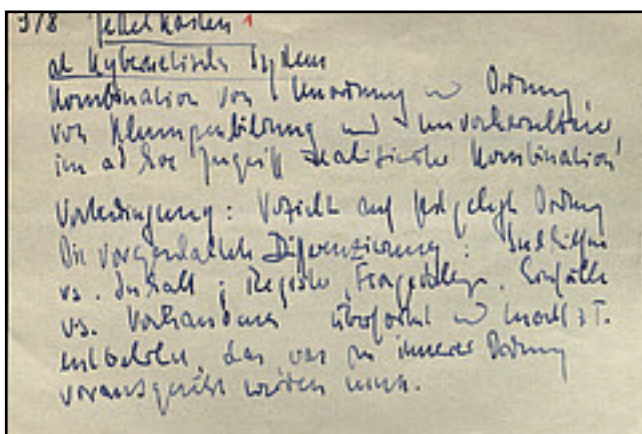 9/8 Zettelkasten 1
als kybernetisches System
Kombination von Unordnung u Ordnung
von Klumpenbildung und unvorhersehbarer
im ad hoc Zugriff realisierter Kombination
Vorbedingung: Verzicht auf festgelegte Ordnung
Die vorgeschaltete Differenzierung: Suchhilfen
vs. Inhalt; Register, Fragestellungen, Einfälle
vs. Vorhandenes überformt u macht z.T.
entbehrlich, das was an innerer Ordnung
vorausgesetzt werden muss.